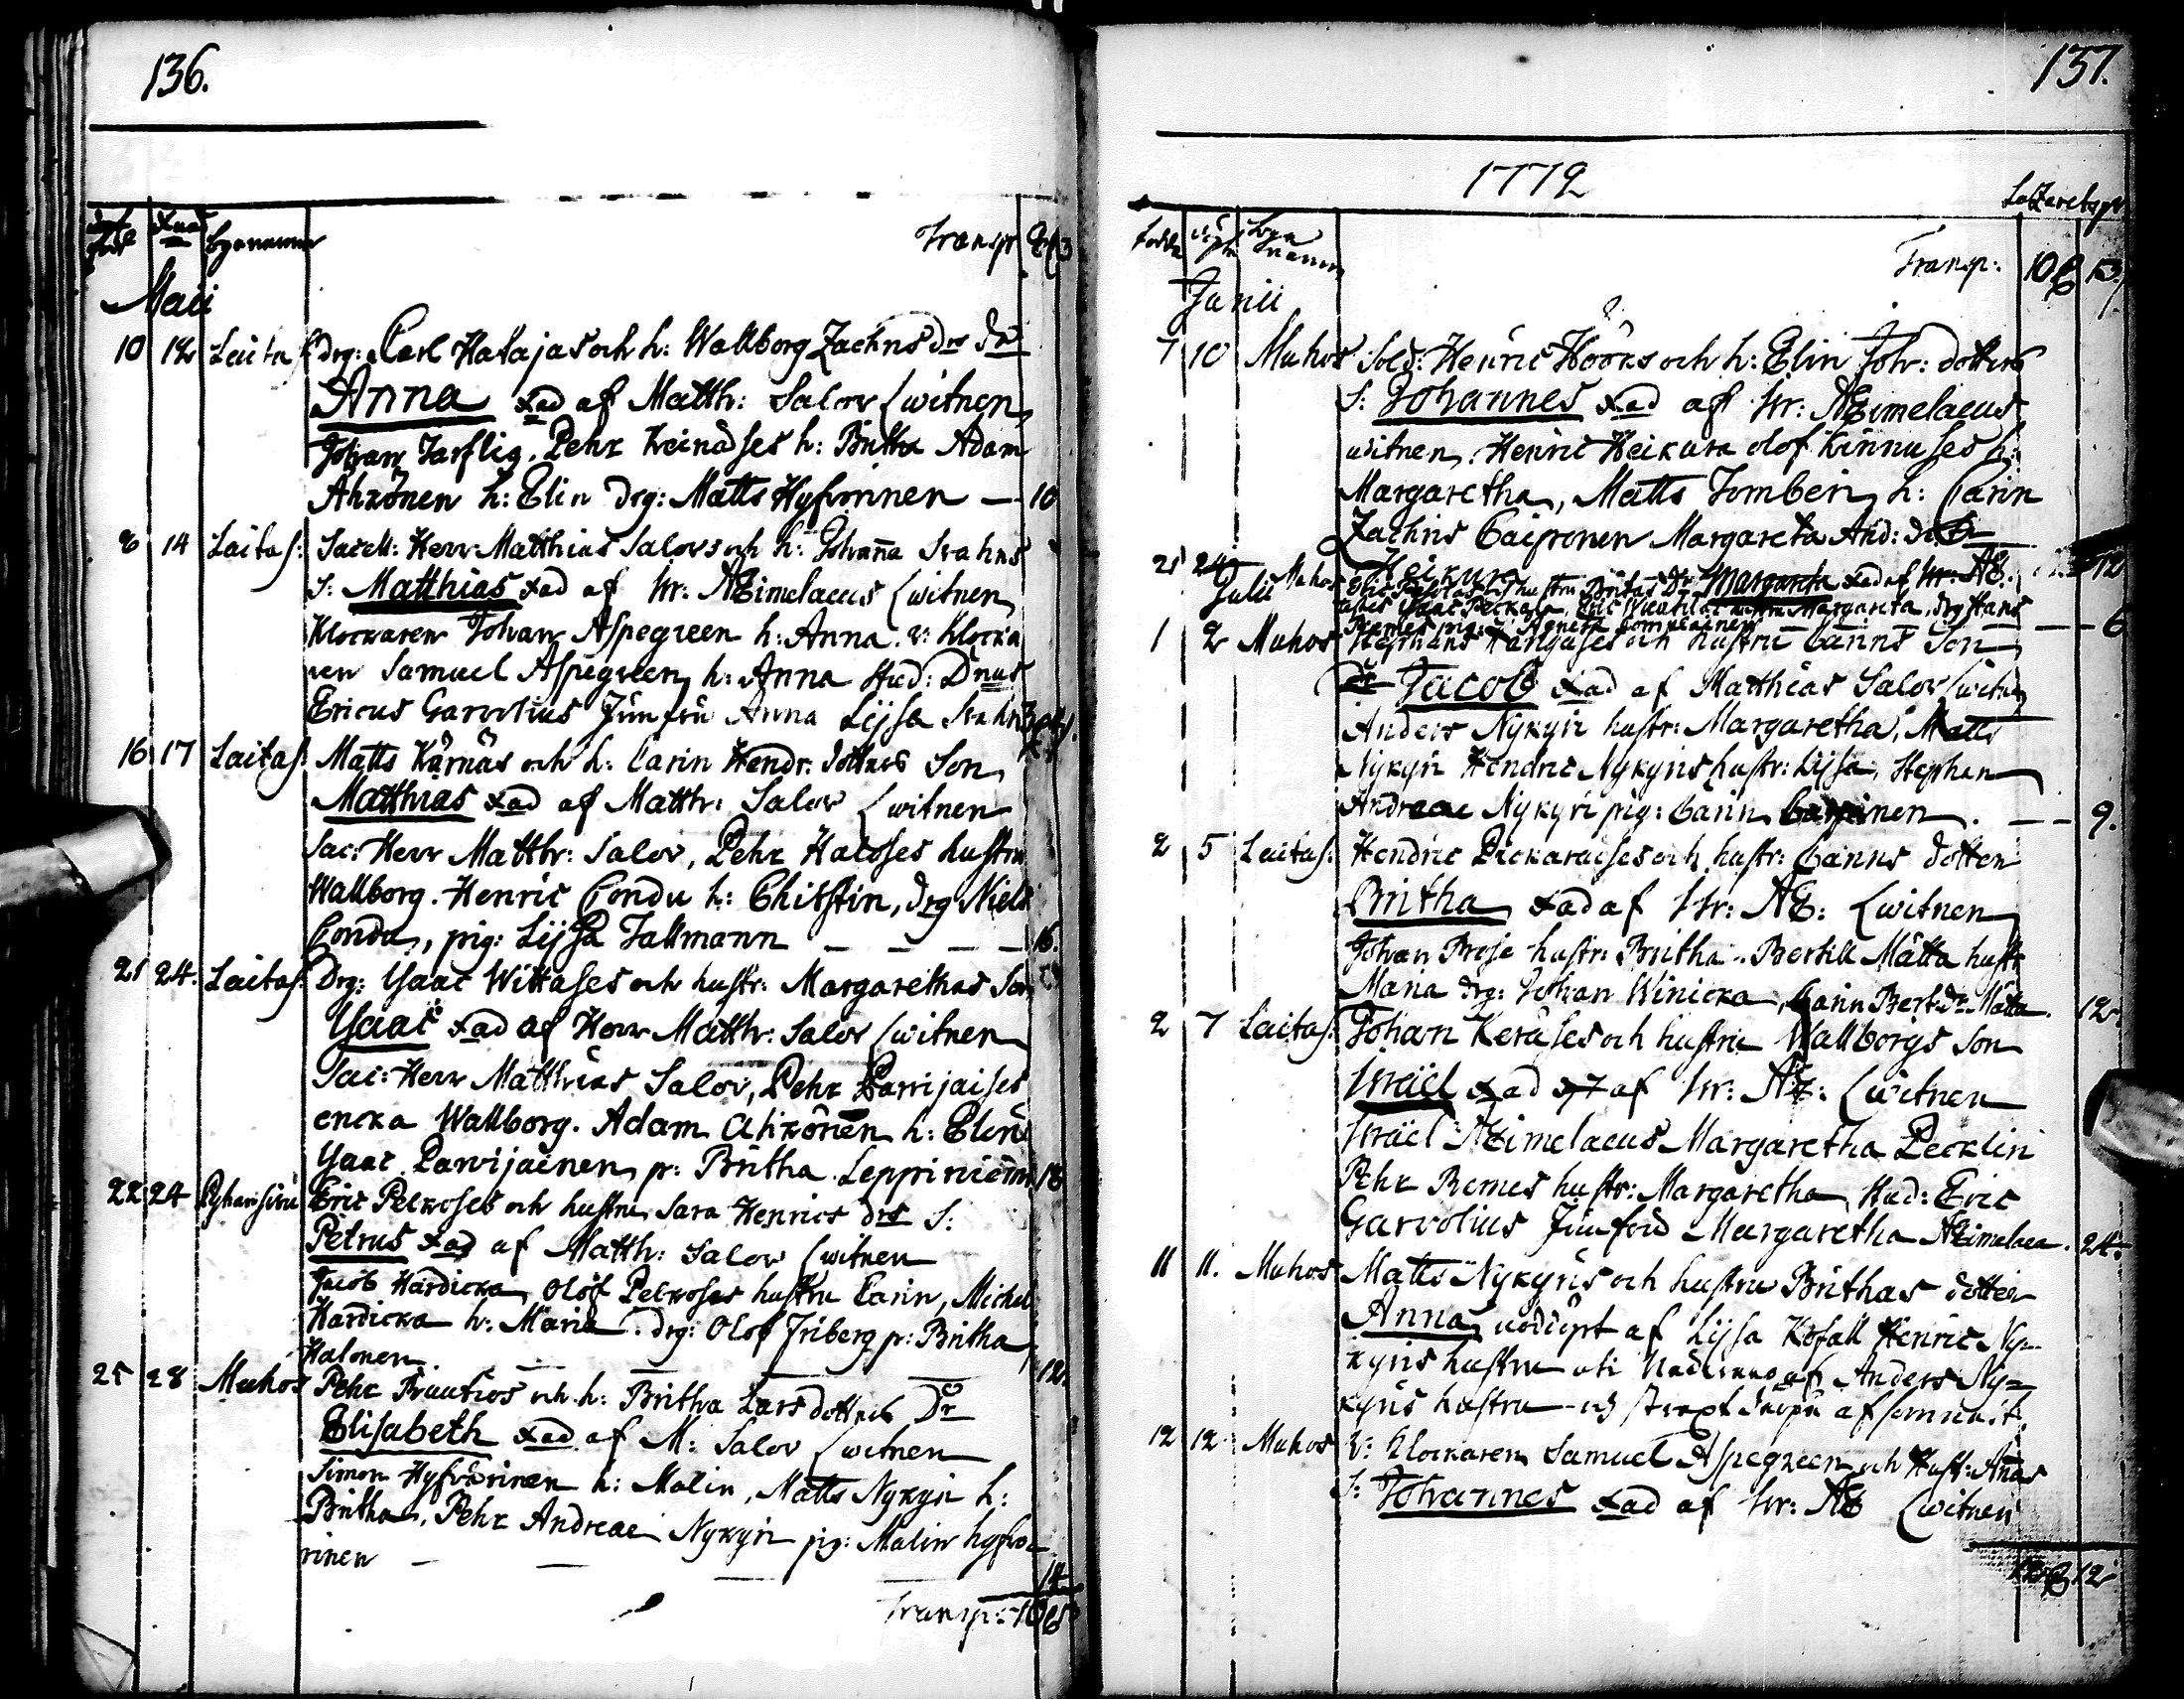 136.
Transp
Maii
10 12 Laitas: drg: Carl Hatajas och h: Wallborg Zachns drs dr
Anna Xad af Matth: Salov (witnen
Johan Jarflig. Pehr Keinäses h: Britta Adam
Ahkönen h: Elin drg: Matts Hyfvönen — 10
14 Laitas: Sacell: Herr Matthias Salovs och h: Johanna Srahns
S: Matthias Xad af Hr: AEimelaeus (witnen
Klockaren Johan Aspegreen h: Anna. v: Klocka
ren Samuel Aspegreen h: Anna Stud: Dnus
Ericus Garvolius Jumfru Anna Lijsa
16 17 Laitas: Matts Kärnäs och h: Carin Hendr: dotters Son
Matthias Xad af Matth: Salov (witnen
Sac: Herr Matth: Salov, Pehr Haloses hustru
Wallborg. Henric Condu h: Chirstin, drg Niels
Conda, pig: Lijsa Tallmann — — — — 16.
21 24. Laitas: Drg: Ysaac Wittases och hustr: Margarethas Son
Ysaac Xad af Herr Matth: Salov (witnen
Sac: Herr Matthias Salov, Pehr Parvijaises
encka Wallborg. Adam Ahkönen h: Elin
Ysaac Parvijainen p: Britha Leppiniemi 18
22 24 Eric Pelkoses och hustru Sara Henrics drs S:
Petrus Xad af Matth: Salov (witnen
Jacob Hardicka, Olof Pelkoses hustru Carin, Michel
Hardicka h: Maria. drg: Olof Friberg p: Britha
Halonen. — — — 12.
25 28 Muhos Pehr och h: Britha Larsdotters Dr
Elisabeth Xad af M: Salov (witnen
Simon Hyfvärinen h: Malin, Matts Nykyri h:
Britha, Pehr Andreae Nykyri pig: Malin Hyfvä
rinen — — — 14
Transp:
137.
1772
Transp: 10
Junii
7 10 Muhos Sold: Henric Hööks och h: Elin Joh: dotters
S: Johannes Xad af Hr: AEimelaeus
witnen. Henric Heikura Olof Kinnuses h:
Margaretha, Matts Tomberi h: Carin
Zachris Caiponen Margareta And: dr
Heikura — 12
25 24 Muhos hustru Britas Dr Margareta Xad af Hr: AE.
Ysaac hustru Margareta, drg Hans
Remes pig: Agneta — — 6
Julii
1 2 Muhos Stephans Kanguses och hustru Carins Son
Jacob Xad af Matthias Salov (witnen
Anders Nykyri hustr: Margaretha, Matts
Nykyri Hendric Nykyris hustr: Lijsa, Stephan
Andreae Nykyri pig: Carin — — 9.
2 5 Laitas: Hendric Pickaraises och hustr: Carins dotter
Britha Xad af Hr: AE: (witnen
Johan hustr: Britha. Bertill Mätta hustr
Maria drg: Johan Winicka, Carin Bert: dr Mätta. 12.
2 7 Laitas: Johan Keräses och hustru Wallborgs Son
Israel Xad af Hr: AE: (witnen
Israel AEimelaeus Margaretha Pecklin
Pehr Remes hustr: Margaretha, Stud: Eric
Garvolius Jumfru Margaretha AEimelaea. 24.
11 11. Muhos Matts Nykyris och hustru Brithas dotter
Anna nödöpt af Lijsa Kofall Henric Ny=
kyris hustru uti af Anders Ny=
kyris hustru och
12 12 Muhos v: Klockaren Samuel Aspegreen och Hust: Annas
S: Johannes Xad af Hr: AE (witnen
12